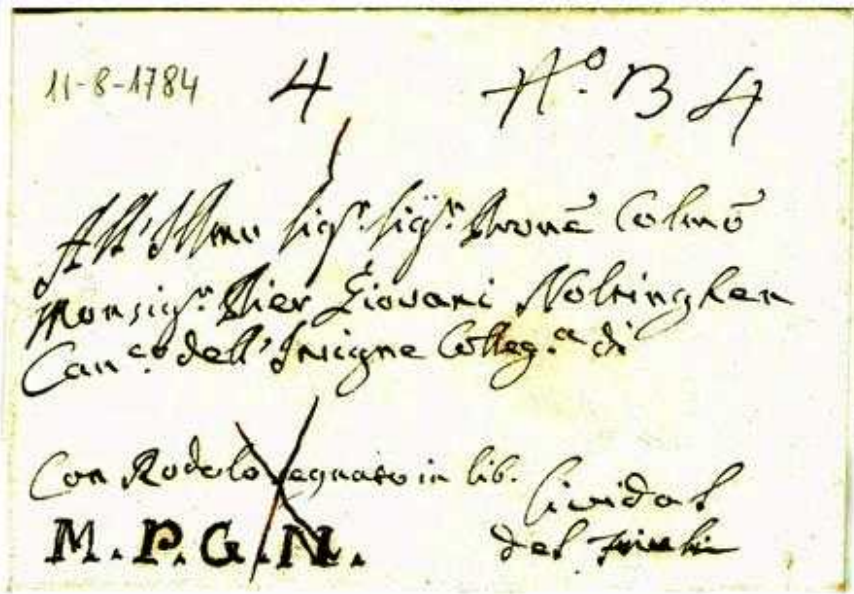 11-8-1784 4 N.º 13 4
All'Illmo Sigr. Sigr. Pronē Colmō
Monsigr. Pier Giovani Noltinghen
Canco. dell'Insigne Colleg.ª di
Con Rodolo segnato in lib. Cividal
M.P.G.N. del Friuli